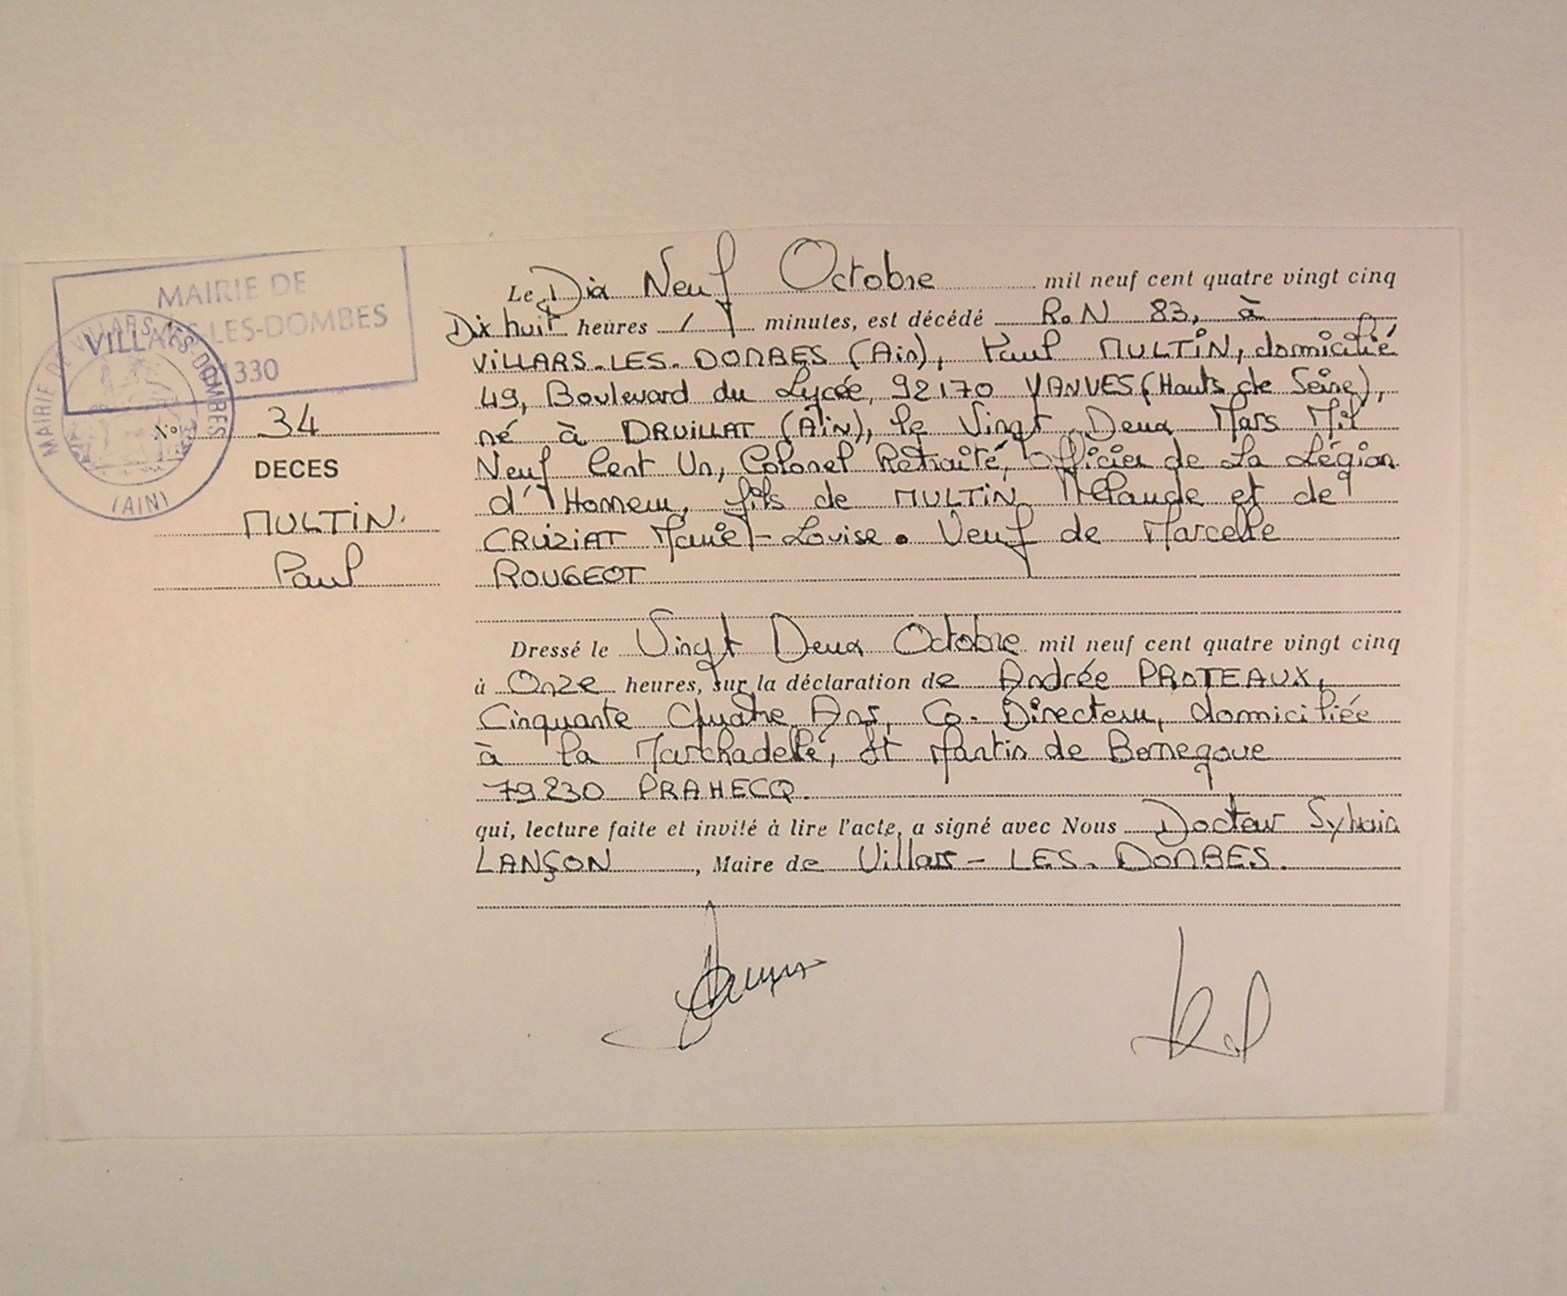 MAIRIE DE
VILLARS-LES-DOMBES
01330
MAIRIE DE VILLARS-LES-DOMBES
(AIN)
N° 34
DECES
MULTIN.
Paul
Le Dix Neuf Octobre mil neuf cent quatre vingt cinq
Dix huit heures / minutes, est décédé R.N 83, à
VILLARS-LES-DOMBES (Ain), Paul MULTIN, domicilié
49, Boulevard du Lycée, 92170 VANVES (Hauts de Seine),
né à DRUILLAT (AIN), le Vingt Deux Mars Mil
Neuf Cent Un, Colonel Retraité, Officier de La Légion
d'Honneur, fils de MULTIN Claude et de
CRUIZIAT Marie-Louise. Veuf de Marcelle
ROUGEOT
Dressé le Vingt Deux Octobre mil neuf cent quatre vingt cinq
à Onze heures, sur la déclaration de Andrée PROTEAUX,
Cinquante Quatre Ans, Co-Directeur, domiciliée
à la Marchadelle, St Martin de Bernegoue
79230 PRAHECQ.
qui, lecture faite et invité à lire l'acte, a signé avec Nous Docteur Sylvain
LANÇON, Maire de Villars-LES-DOMBES.